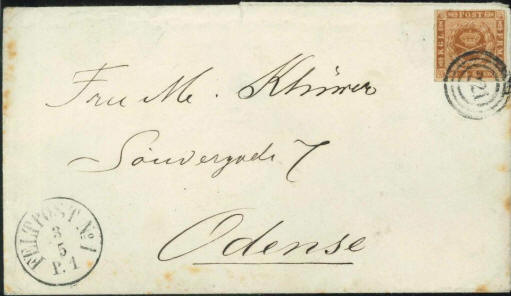 POST
221
Frue M. Klüwer
Søndergade 7
Odense
FELTPOST № 1
3
5
P. 1